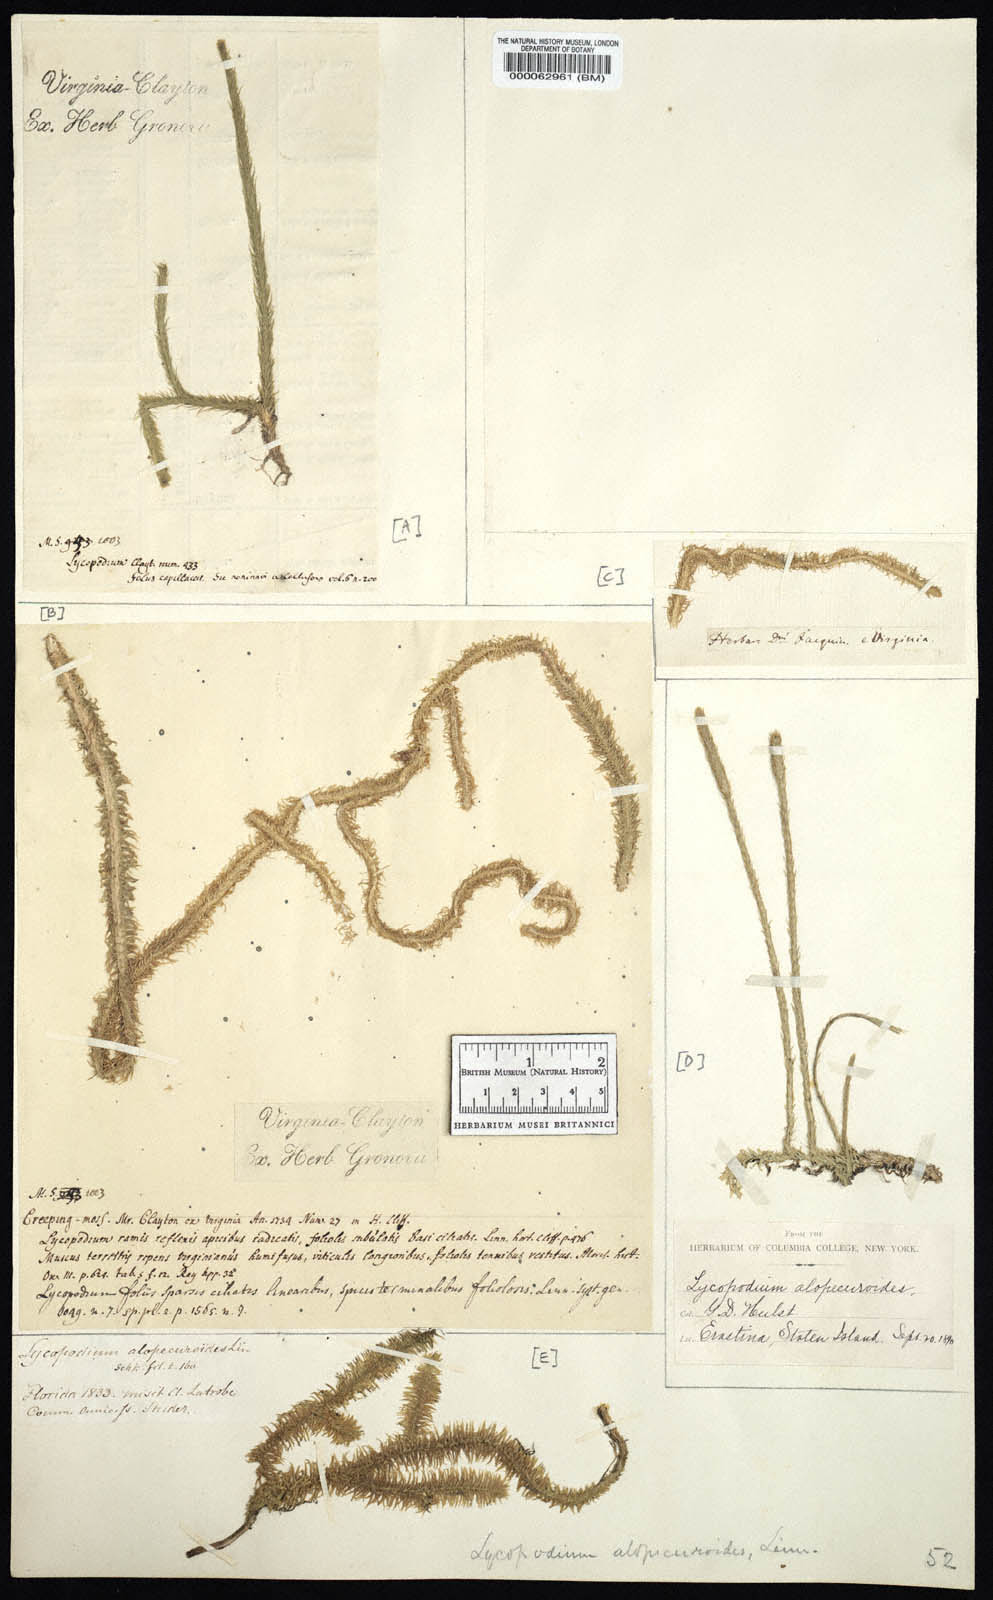 THE NATURAL HISTORY MUSEUM, LONDON
DEPARTMENT OF BOTANY
000062961 (BM)
Virginia-Clayton
Ex. Herb Gronovii
[A]
M.S. 1003
Lycopodium Clayt. num. 433
foliis capillaceis vol. 6 n. 200
[C]
Herbar. Jacquin. e Virginia.
[B]
1 2
BRITISH MUSEUM (NATURAL HISTORY)
1 2 3 4 5
HERBARIUM MUSEI BRITANNICI
Virginia-Clayton
Ex. Herb Gronovii
M.S. 1003
Creeping-moss. Mr. Clayton ex Virginia An. 1734 Num. 27 in H. Cliff.
Lycopodium ramis reflexis apicibus radicatis, foliolis subulatis basi ciliatis. Linn. hort. Cliff. p. 476
Muscus terrestris repens virginianus humifusus, viticulis longioribus, foliolis tenuibus vestitus. Moris. hist.
Ox. III. p. 624. tab. 5 f. 12. Ray
Lycopodium foliis sparsis ciliatis linearibus, spicis terminalibus foliolosis. Linn. syst. gen.
n. 7. sp. pl. 2. p. 1565. n. 7.
[D]
FROM THE
HERBARIUM OF COLUMBIA COLLEGE, NEW YORK.
Lycopodium alopecuroides.
G. D. Hulst
Erastina, Staten Island. Sept. 20.
[E]
Lycopodium alopecuroides Lin.
Schk. fil. t. 160
Florida 1833. misit cl. Latrobe
Comm. amicis. Studer.
Lycopodium alopecuroides, Linn.
52